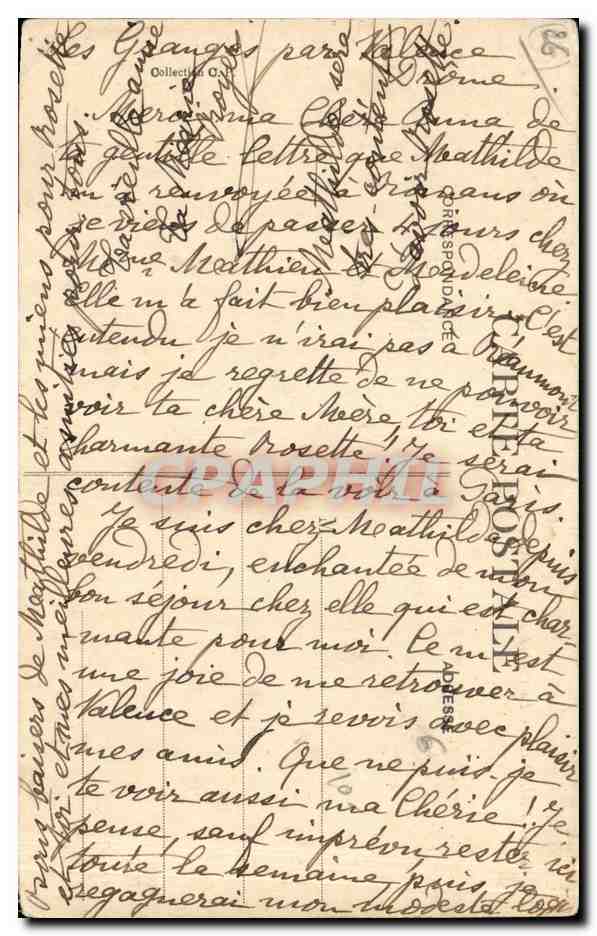 Les Granges par Valence
Drôme
Merci ma Chère Anna de
ta gentille lettre que Mathilde
m'a renvoyée à Romans où
je viens de passer 4 jours chez
Mme Mathieu et Madeleine.
Elle m'a fait bien plaisir. C'est
entendu je n'irai pas à Réaumont
mais je regrette de ne pouvoir
voir ta chère Mère toi et ta
charmante Rosette! Je serai
contente de la voir à Paris.
Je suis chez Mathilde depuis
vendredi, enchantée de mon
bon séjour chez elle qui est char-
mante pour moi. Ce m'est
une joie de me retrouver à
Valence et je revois avec plaisir
mes amis. Que ne puis-je
te voir aussi ma Chérie! Je
pense, sauf imprévu rester ici
toute la semaine puis je
regagnerai mon modeste logis
baisers de Mathilde et les miens pour Rosette
et toi et mes meilleures amitiés pour tous.
Mathilde sera
très contente
d'avoir Rosette
Collection C.P.
CARTE POSTALE
CORRESPONDANCE
ADRESSE
26
6
10
CPARAMA